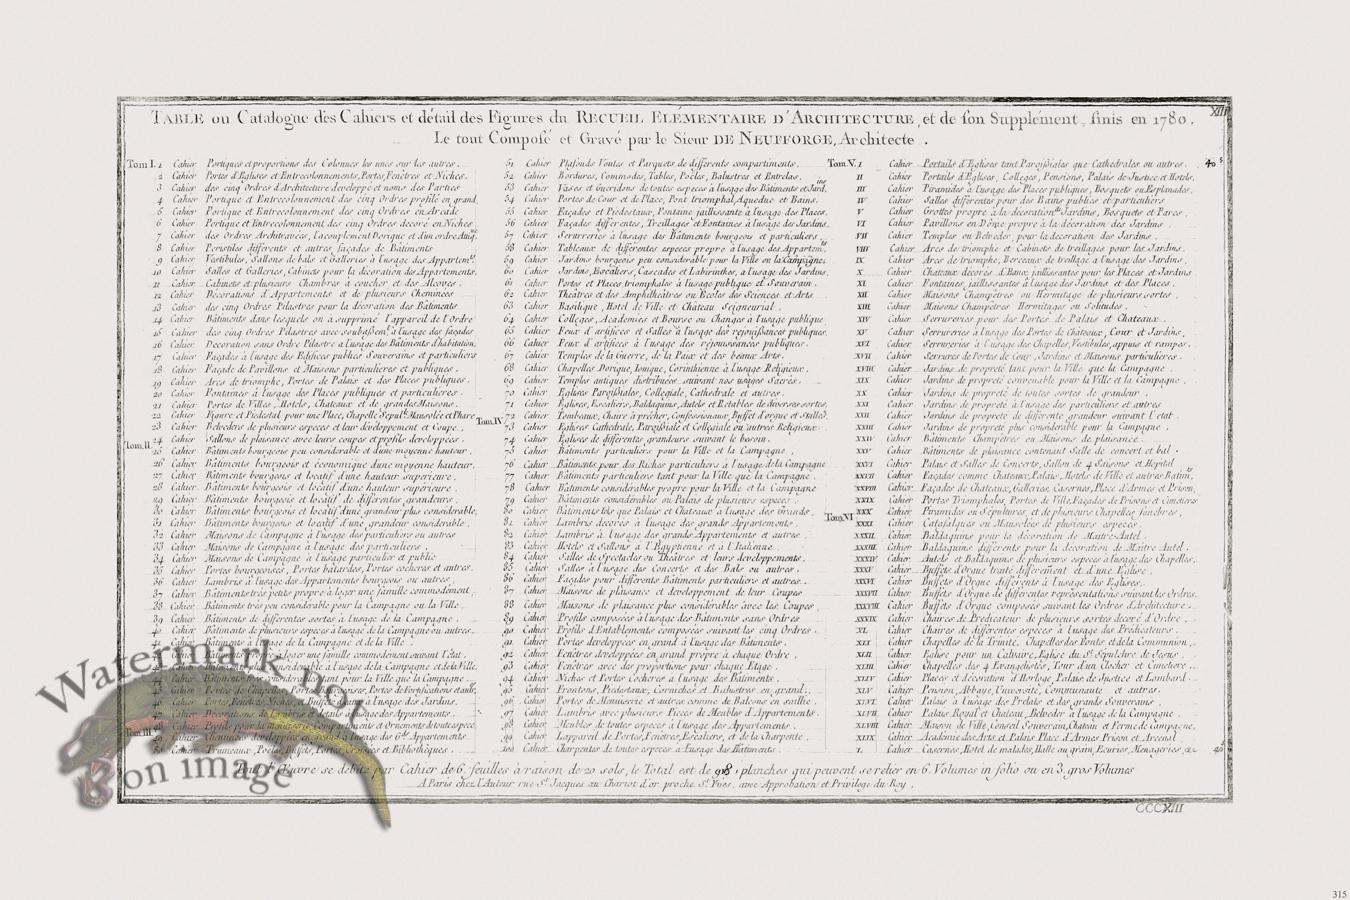 XIII
TABLE ou Catalogue des Cahiers et détail des Figures du RECUEIL ÉLÉMENTAIRE D'ARCHITECTURE, et de son Supplément, finis en 1780.
Le tout Composé et Gravé par le Sieur DE NEUFFORGE, Architecte.
Tom I. 1 Cahier Portiques et proportions des Colonnes les unes sur les autres.
2 Cahier Portes d'Eglises et Entrecolonnements, Portes, Fenêtres et Niches.
3 Cahier des cinq Ordres d'Architecture développé et noms des Parties
4 Cahier Portique et Entrecolonnement des cinq Ordres profilé en grand
5 Cahier Portique et Entrecolonnement des cinq Ordres en Arcade
6 Cahier Portique et Entrecolonnement des cinq Ordres décoré en Niches
8 Cahier Peristiles différents et autres façades de Bâtiments
9 Cahier Vestibules, Sallons de bals et Galleries à l'usage des Appartem.
10 Cahier Salles et Galleries, Cabinets pour la décoration des Appartements.
11 Cahier Cabinets et plusieurs Chambres à coucher et des Alcoves.
12 Cahier Décorations d'Appartements et de plusieurs Cheminées
13 Cahier des cinq Ordres Pilastres pour la décoration des Bâtiments
14 Cahier Bâtiments dans lesquels on a supprimé l'appareil de l'Ordre
15 Cahier des cinq Ordres Pilastres avec soubassem.t à l'usage des façades
16 Cahier Décoration sans Ordre Pilastre à l'usage des Bâtiments d'habitation
17 Cahier Façades à l'usage des Edifices publics Souverains et particuliers
18 Cahier Façade de Pavillons et Maisons particulieres et publiques.
19 Cahier Arcs de triomphe, Portes de Palais et des Places publiques.
20 Cahier Fontaines à l'usage des Places publiques et particulieres.
21 Cahier Portes de Villes, Hotels, Chateaux et de grandes Maisons.
22 Cahier Figure et Piedestal pour une Place, Chapelle Sepul. Mausolée et Phare
23 Cahier Belvederes de plusieurs especes et leur développement et Coupe.
Tom. II. 24 Cahier Sallons de plaisance avec leurs coupes et profils developpées.
25 Cahier Bâtiments bourgeois peu considerable et d'une moyenne hauteur.
26 Cahier Bâtiments bourgeois et économique d'une moyenne hauteur.
27 Cahier Bâtiments bourgeois et locatif d'une hauteur supérieure.
28 Cahier Bâtiments bourgeois et locatif d'une hauteur supérieure.
29 Cahier Bâtiments bourgeois et locatif de différentes grandeurs.
30 Cahier Bâtiments bourgeois et locatif d'une grandeur plus considerable.
31 Cahier Bâtiments bourgeois et locatif d'une grandeur considerable.
32 Cahier Maisons de Campagne à l'usage des particuliers ou autres
33 Cahier Maisons de Campagne à l'usage des particuliers.
34 Cahier Maisons de Campagne à l'usage particulier et public
35 Cahier Portes bourgeoises, Portes bâtardes, Portes cocheres et autres.
36 Cahier Lambris à l'usage des Appartements bourgeois ou autres
37 Cahier Bâtiments très petits propre à loger une famille commodément
38 Cahier Bâtiments très peu considerable pour la Campagne ou la Ville
39 Cahier Bâtiments de différentes sortes à l'usage de la Campagne.
40 Cahier Bâtiments de plusieurs especes à l'usage de la Campagne ou autres.
51 Cahier Plafonds Voutes et Parquets de différents compartiments.
52 Cahier Bordures, Commodes, Tables, Poëles, Balustres et Entrelas.
53 Cahier Vases et Gueridons de toutes especes à l'usage des Bâtiments et Jard.ins
54 Cahier Portes de Cour et de Place, Pont triomphal, Aqueduc et Bains.
55 Cahier Façades et Piedestaux, Fontaine jaillissante à l'usage des Places.
56 Cahier Façades différentes, Treillages et Fontaines à l'usage des Jardins.
57 Cahier Serrureries à l'usage des Bâtiments bourgeois et particuliers.
58 Cahier Tableaux de différentes especes propre à l'usage des Apparten.ts
59 Cahier Jardins bourgeois peu considerable pour la Ville ou la Campagne.
60 Cahier Jardins, Bocaliers, Cascades et Labirinthes, à l'usage des Jardins.
61 Cahier Portes et Places triomphales à l'usage publique et Souverain.
62 Cahier Théâtres et des Amphithéâtres ou Ecoles des Sciences et Arts
63 Cahier Basilique, Hotel de Ville et Château Seigneurial.
64 Cahier Colleges, Académies et Bourse ou Changes à l'usage publique
65 Cahier Feux d'artifices et Salles à l'usage des réjouissances publiques.
66 Cahier Feux d'artifices à l'usage des réjouissances publiques.
67 Cahier Temples de la Guerre, de la Paix et des beaux Arts.
68 Cahier Chapelles Dorique, Ionique, Corinthienne à l'usage Religieux.
69 Cahier Temples antiques distribuées suivant nos usages Sacrés.
70 Cahier Eglises Paroissiales, Collegiale, Cathedrale et autres.
71 Cahier Eglises, Escaliers, Baldaquins, Autels et Retables de diverses sortes.
72 Cahier Tombeaux, Chaire à prêcher, Confessionaux, Buffet d'orgue et Stalles.
Tom IV 73 Cahier Eglises Cathedrale, Paroissiale et Collegiale ou autres Religieux.
74 Cahier Eglises de différentes grandeurs suivant le besoin.
75 Cahier Bâtiments particuliers pour la Ville et la Campagne.
76 Cahier Bâtiments pour des Riches particuliers à l'usage de la Campagne
77 Cahier Bâtiments particuliers tant pour la Ville que la Campagne
78 Cahier Bâtiments considerables propre pour la Ville et la Campagne
79 Cahier Bâtiments considerables ou Palais de plusieurs especes
80 Cahier Bâtiments tels que Palais et Chateaux à l'usage des Grands.
81 Cahier Lambris decorés à l'usage des grands Appartements.
82 Cahier Lambris à l'usage des grands Appartements et autres.
83 Cahier Hotels et Sallons à l'Egyptienne et à l'Italienne.
84 Cahier Salles de Spectacles ou Théâtres et leurs developpements.
85 Cahier Salles à l'usage des Concerts et des Bals ou autres.
86 Cahier Façades pour différents Bâtiments particuliers et autres.
87 Cahier Maisons de plaisance et developpement de leur Coupes
88 Cahier Maisons de plaisance plus considerables avec les Coupes
89 Cahier Profils composées à l'usage des Bâtiments sans Ordres
90 Cahier Profils d'Entablements composées suivant les cinq Ordres.
91 Cahier Portes developpées en grand à l'usage des Bâtiments.
92 Cahier Fenêtres developpées en grand propre à chaque Ordre.
93 Cahier Fenêtres avec des proportions pour chaque Etage.
94 Cahier Niches et Portes Cocheres à l'usage des Bâtiments.
95 Cahier Frontons, Piedestaux, Corniches et Balustres en grand.
96 Cahier Portes de Menuiserie et autres comme de Balcons en saillie.
97 Cahier Lambris avec plusieurs Pieces de Meubles d'Appartements.
98 Cahier Meubles de toutes especes à l'usage des Bâtiments.
99 Cahier L'appareil de Portes, Fenêtres, Escaliers, et de la Charpente.
100 Cahier Charpentes de toutes especes à l'usage des Bâtiments.
Tom V. I Cahier Portails d'Eglises tant Paroissiales que Cathedrales ou autres. 40 s
II Cahier Portails d'Eglises, Colleges, Pensions, Palais de Justice et Hotels.
III Cahier Piramides à l'usage des Places publiques, Bosquets ou Esplanades.
IV Cahier Salles différentes pour des Bains publics et particuliers
V Cahier Grottes propre à la décoration des Jardins, Bosquets et Parcs.
VI Cahier Pavillons en Dôme propre à la décoration des Jardins.
VII Cahier Temples ou Belveder, pour la décoration des Jardins.
VIII Cahier Arcs de triomphe et Cabinets de treillages pour les Jardins.
IX Cahier Arcs de triomphe, Berceaux de treillage à l'usage des Jardins.
X Cahier Chateau décoré d'Eaux jaillissantes pour les Places et Jardins
XI Cahier Fontaines jaillissantes à l'usage des Jardins et des Places.
XII Cahier Maisons Champêtres ou Hermitage de plusieurs sortes.
XIII Cahier Maisons Champêtres Hermitages ou Solitudes.
XIV Cahier Serrureries pour des Portes de Palais et Chateaux.
XV Cahier Serrureries à l'usage des Portes de Chateaux, Cour et Jardins.
XVI Cahier Serrureries à l'usage des Chapelles, Vestibules, appuis et rampes.
XVII Cahier Serrures de Portes de Cour, Jardins et Maisons particulieres.
XVIII Cahier Jardins de propreté tant pour la Ville que la Campagne
XIX Cahier Jardins de propreté convenable pour la Ville et la Campagne
XX Cahier Jardins de propreté de toutes sortes de grandeur.
XXI Cahier Jardins de propreté à l'usage des particuliers et autres
XXII Cahier Jardins de propreté de différente grandeur suivant l'état.
XXIII Cahier Jardins de propreté plus considerable pour la Campagne.
XXIV Cahier Bâtiments Champetres ou Maisons de plaisance.
XXV Cahier Bâtiments de plaisance contenant Salle de concert et bal.
XXVI Cahier Palais et Salles de Concerts, Sallon de 4 Saisons et Hopital
XXVII Cahier Façades comme Chateaux, Palais, Hotels de Ville et autres Batim.ts
XXVIII Cahier Façades de Chateaux, Galleries, Casernes, Place d'Armes et Prison.
XXIX Cahier Portes Triomphales, Portes de Ville, Façades de Prisons et Cimetiere
Tom. VI XXX Cahier Piramides ou Sepultures, et de plusieurs Chapelles funebres.
XXXI Cahier Catafalques ou Mausolées de plusieurs especes.
XXXII Cahier Baldaquins pour la décoration de Maitre Autel.
XXXIII Cahier Baldaquins différents pour la décoration de Maitre Autel.
XXXIV Cahier Autels et Baldaquins de plusieurs especes à l'usage des Chapelles.
XXXV Cahier Buffets d'Orgue traité différement et d'une Eglise.
XXXVI Cahier Buffets d'Orgue différents à l'usage des Eglises.
XXXVII Cahier Buffets d'Orgue de différentes représentations suivant les Ordres.
XXXVIII Cahier Buffets d'Orgue composés suivant les Ordres d'Architecture.
XXXIX Cahier Chaires de Prédicateur de plusieurs sortes decoré d'Ordre.
XL Cahier Chaires de différentes especes à l'usage des Prédicateurs.
XLI Cahier Chapelles de la Trinité, Chapelles des Fonts et de la Communion.
XLII Cahier Eglise pour un Calvaire, Eglise du S.t Sépulchre de Jesus.
XLIII Cahier Chapelles des 4 Evangelistes, Tour d'un Clocher et Cimetiere.
XLIV Cahier Places et décoration d'Horloge, Palais de Justice et Lombard.
XLV Cahier Pension, Abbaye, Université, Communauté et autres.
XLVI Cahier Palais à l'usage des Prelats et des grands Souverains.
XLVII Cahier Palais Royal et Chateau, Belveder à l'usage de la Campagne
XLVIII Cahier Maison de Ville, Conseil Souverain, Chateau et Ferme de Campagne.
XLIX Cahier Académie des Arts et Palais Place d'Armes Prison et Arcenal
L Cahier Casernes, Hotel de malades, Halle au grain, Ecuries, Menageries, &c
Tout l'Œuvre se débite par Cahier de 6. feuilles à raison de 20 sols, le Total est de 918. planches qui peuvent se relier en 6. Volumes in folio ou en 3. gros Volumes
A Paris chez l'Auteur rue S.t Jacques au Chariot d'or proche S.t Yves. avec Approbation et Privilege du Roy.
CCCXIII
Watermark not
on image
315